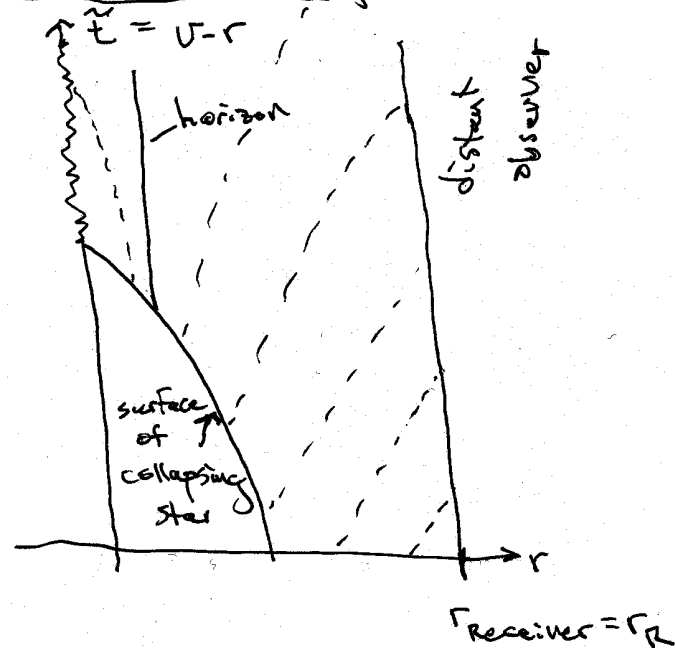 t̃ = v-r
horizon
distant
observer
surface
of
collapsing
star
r
r_Receiver = r_R